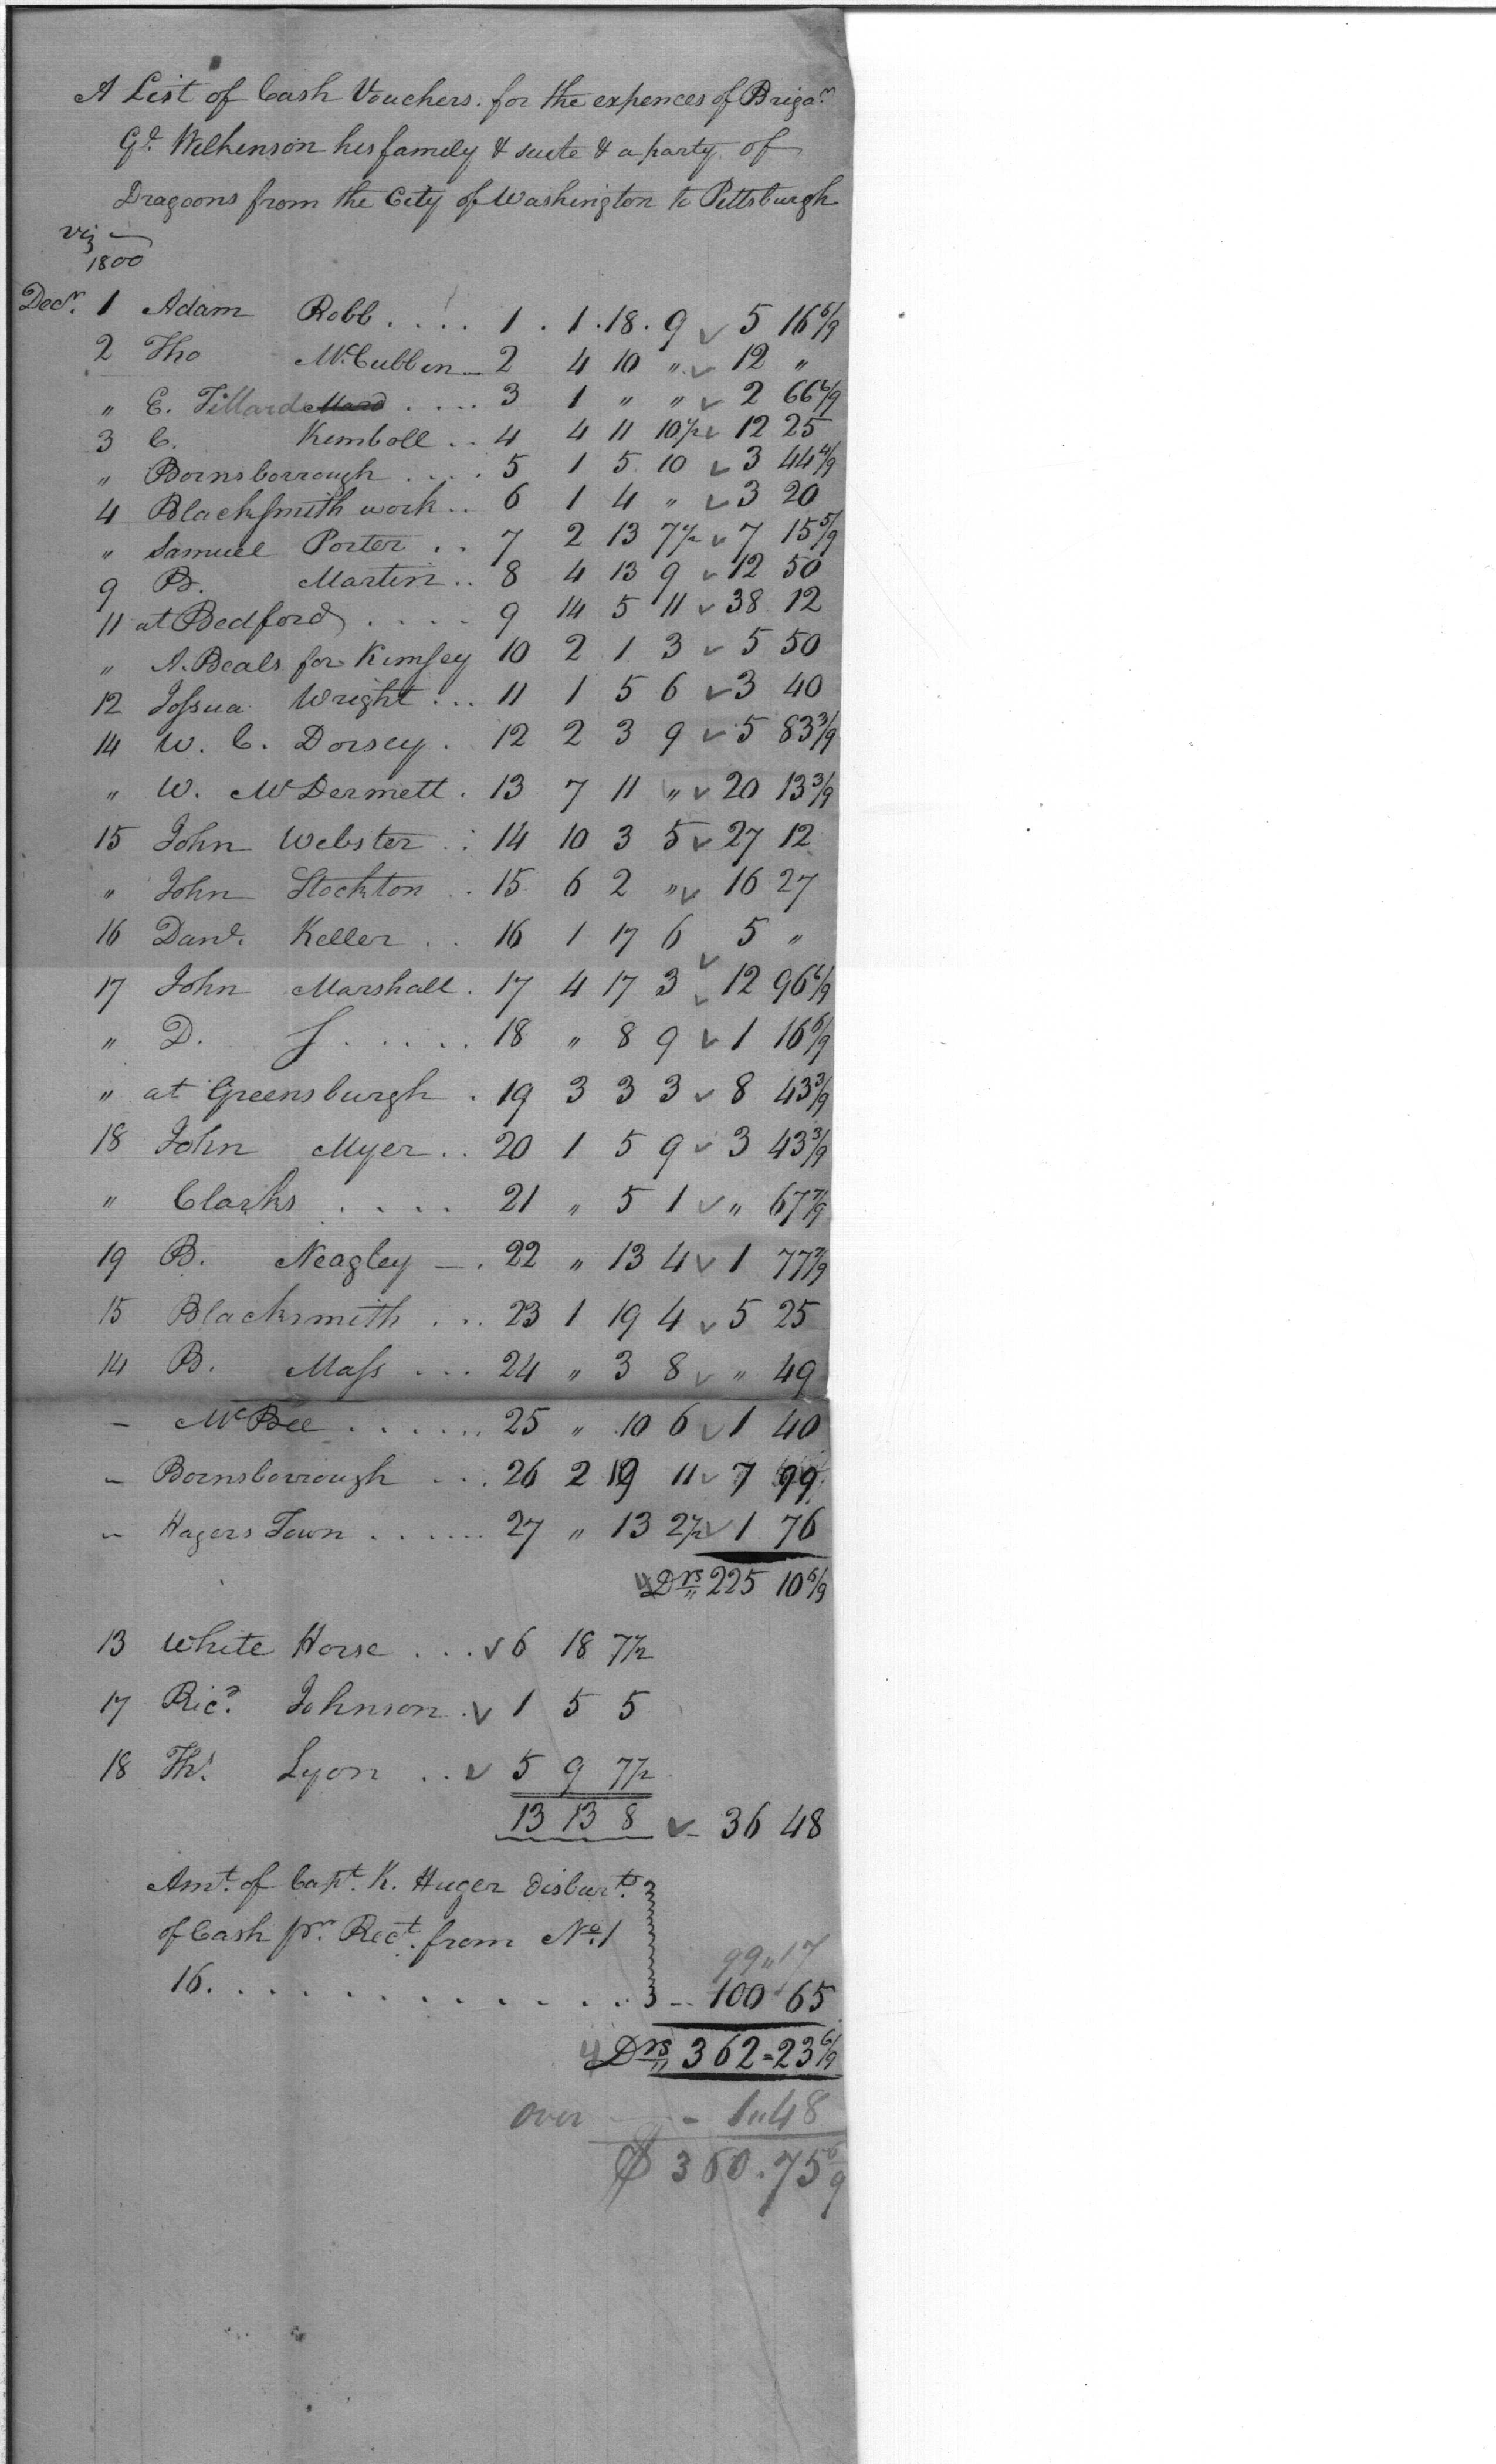 A List of Cash Vouchers for the expences of Brigar.
Gl. Wilkinson his family & suite & a party of
Dragoons from the City of Washington to Pittsburgh
viz —
1800
Decr. 1 Adam Robb . . . . 1 . 1 . 18 . 9 ✓ 5 16 6/9
2 Tho McCubbin — 2 4 10 " ✓ 12 "
" E. Tillard . . . . 3 1 " " ✓ 2 66 6/9
3 C. Kemboll . . 4 4 11 10 1/2 ✓ 12 25
" Bornsborrough . . . . 5 1 5 10 ✓ 3 44 4/9
4 Blacksmith work . . 6 1 4 " ✓ 3 20
" Samuel Porter . . 7 2 13 7 1/2 ✓ 7 15 5/9
9 B. Martin . . 8 4 13 9 ✓ 12 50
11 at Bedford . . . . 9 14 5 11 ✓ 38 12
" A. Beals for Kimsey 10 2 1 3 ✓ 5 50
12 Jossua Wright . . . 11 1 5 6 ✓ 3 40
14 W. C. Dorsey . 12 2 3 9 ✓ 5 83 3/9
" W. McDermett . 13 7 11 " ✓ 20 13 3/9
15 John Webster . : 14 10 3 5 ✓ 27 12
" John Stockton . . 15 6 2 " ✓ 16 27
16 Danl. Keller . . 16 1 17 6 ✓ 5 "
17 John Marshall . 17 4 17 3 ✓ 12 96 6/9
" D. J . . . . . 18 " 8 9 ✓ 1 16 6/9
" at Greensburgh . 19 3 3 3 ✓ 8 43 3/9
18 John Myer . . 20 1 5 9 ✓ 3 43 3/9
" Clarks . . . . 21 " 5 1 ✓ " 67 7/9
19 B. Neagley — . 22 " 13 4 ✓ 1 77 7/9
15 Blacksmith . . . 23 1 19 4 ✓ 5 25
14 B. Mass . . . 24 " 3 8 ✓ " 49
– McBee . . . . . . 25 " 10 6 ✓ 1 40
– Bornsborrough . . . 26 2 19 11 ✓ 7 99
– Hagers Town . . . . . . 27 " 13 2 1/2 ✓ 1 76
Drs 225 10 6/9
13 White Horse . . . ✓ 6 18 7 1/2
17 Ricd. Johnson . ✓ 1 5 5
18 Ths. Lyon . . ✓ 5 9 7 1/2
13 13 8 ✓ – 36 48
Amt. of Capt. K. Huger disburts.
of Cash pr. Rect. from No. 1
99 " 17
16 . . . . . . . . . . . . . – 100 65
Drs 362 = 23 6/9
over — - 1 " 48
$ 360 . 75 6/9